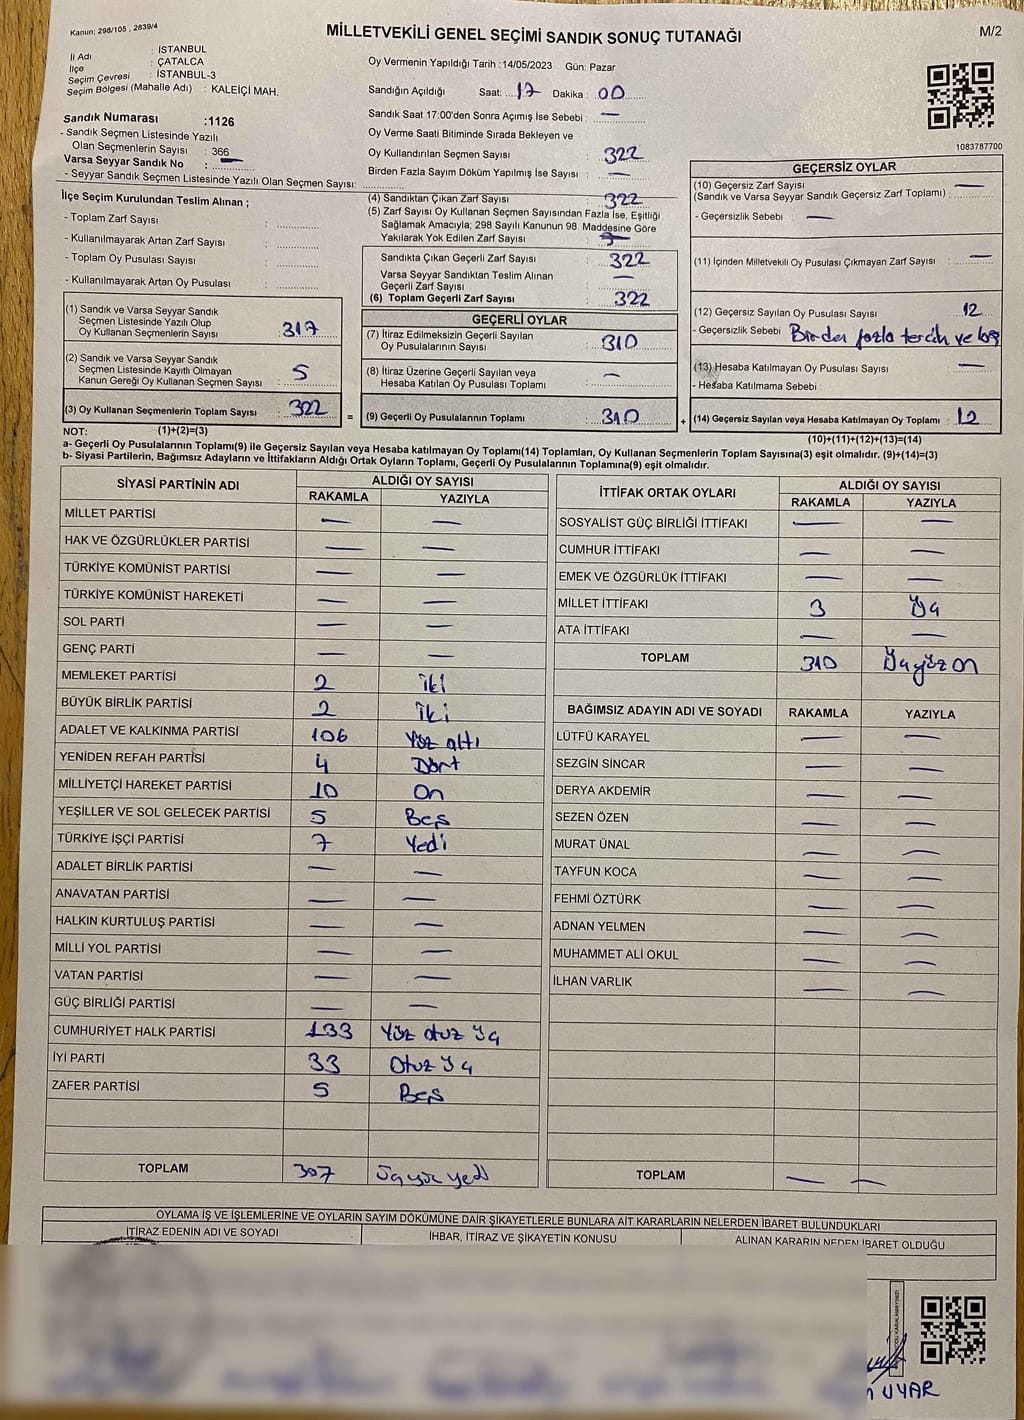 Kanun; 298/105 , 2839/4
MİLLETVEKİLİ GENEL SEÇİMİ SANDIK SONUÇ TUTANAĞI
M/2
İl Adı : İSTANBUL
İlçe : ÇATALCA
Seçim Çevresi : İSTANBUL-3
Seçim Bölgesi (Mahalle Adı) : KALEİÇİ MAH.
Oy Vermenin Yapıldığı Tarih :14/05/2023 Gün: Pazar
Sandığın Açıldığı Saat: 17 Dakika : 00
Sandık Saat 17:00'den Sonra Açımış İse Sebebi : —
Oy Verme Saati Bitiminde Sırada Bekleyen ve
Oy Kullandırılan Seçmen Sayısı : 322
Birden Fazla Sayım Döküm Yapılmış İse Sayısı : —
Sandık Numarası :1126
- Sandık Seçmen Listesinde Yazılı
Olan Seçmenlerin Sayısı : 366
Varsa Seyyar Sandık No : —
- Seyyar Sandık Seçmen Listesinde Yazılı Olan Seçmen Sayısı:
1083787700
İlçe Seçim Kurulundan Teslim Alınan ;
- Toplam Zarf Sayısı :
- Kullanılmayarak Artan Zarf Sayısı :
- Toplam Oy Pusulası Sayısı :
- Kullanılmayarak Artan Oy Pusulası :
(1) Sandık ve Varsa Seyyar Sandık
Seçmen Listesinde Yazılı Olup
Oy Kullanan Seçmenlerin Sayısı : 317
(2) Sandık ve Varsa Seyyar Sandık
Seçmen Listesinde Kayıtlı Olmayan
Kanun Gereği Oy Kullanan Seçmen Sayısı : 5
(3) Oy Kullanan Seçmenlerin Toplam Sayısı : 322
(4) Sandıktan Çıkan Zarf Sayısı : 322
(5) Zarf Sayısı Oy Kullanan Seçmen Sayısından Fazla İse, Eşitliği
Sağlamak Amacıyla; 298 Sayılı Kanunun 98. Maddesine Göre
Yakılarak Yok Edilen Zarf Sayısı :
Sandıkta Çıkan Geçerli Zarf Sayısı : 322
Varsa Seyyar Sandıktan Teslim Alınan
Geçerli Zarf Sayısı : —
(6) Toplam Geçerli Zarf Sayısı : 322
GEÇERLİ OYLAR
(7) İtiraz Edilmeksizin Geçerli Sayılan
Oy Pusulalarının Sayısı : 310
(8) İtiraz Üzerine Geçerli Sayılan veya
Hesaba Katılan Oy Pusulası Toplamı : —
= (9) Geçerli Oy Pusulalarının Toplamı : 310 +
GEÇERSİZ OYLAR
(10) Geçersiz Zarf Sayısı : —
(Sandık ve Varsa Seyyar Sandık Geçersiz Zarf Toplamı)
- Geçersizlik Sebebi : —
(11) İçinden Milletvekili Oy Pusulası Çıkmayan Zarf Sayısı : —
(12) Geçersiz Sayılan Oy Pusulası Sayısı : 12
- Geçersizlik Sebebi : Birden fazla tercih ve boş
(13) Hesaba Katılmayan Oy Pusulası Sayısı : —
- Hesaba Katılmama Sebebi :
(14) Geçersiz Sayılan veya Hesaba Katılmayan Oy Toplamı : 12
NOT: (1)+(2)=(3)
(10)+(11)+(12)+(13)=(14)
a- Geçerli Oy Pusulalarının Toplamı(9) ile Geçersiz Sayılan veya Hesaba katılmayan Oy Toplamı(14) Toplamları, Oy Kullanan Seçmenlerin Toplam Sayısına(3) eşit olmalıdır. (9)+(14)=(3)
b- Siyasi Partilerin, Bağımsız Adayların ve İttifakların Aldığı Ortak Oyların Toplamı, Geçerli Oy Pusulalarının Toplamına(9) eşit olmalıdır.
SİYASİ PARTİNİN ADI ALDIĞI OY SAYISI
RAKAMLA YAZIYLA
MİLLET PARTİSİ — —
HAK VE ÖZGÜRLÜKLER PARTİSİ — —
TÜRKİYE KOMÜNİST PARTİSİ — —
TÜRKİYE KOMÜNİST HAREKETİ — —
SOL PARTİ — —
GENÇ PARTİ — —
MEMLEKET PARTİSİ 2 İki
BÜYÜK BİRLİK PARTİSİ 2 İki
ADALET VE KALKINMA PARTİSİ 106 Yüz altı
YENİDEN REFAH PARTİSİ 4 Dört
MİLLİYETÇİ HAREKET PARTİSİ 10 On
YEŞİLLER VE SOL GELECEK PARTİSİ 5 Beş
TÜRKİYE İŞÇİ PARTİSİ 7 Yedi
ADALET BİRLİK PARTİSİ — —
ANAVATAN PARTİSİ — —
HALKIN KURTULUŞ PARTİSİ — —
MİLLİ YOL PARTİSİ — —
VATAN PARTİSİ — —
GÜÇ BİRLİĞİ PARTİSİ — —
CUMHURİYET HALK PARTİSİ 133 Yüz otuz üç
İYİ PARTİ 33 Otuz üç
ZAFER PARTİSİ 5 Beş
TOPLAM 307 Üçyüz yedi
İTTİFAK ORTAK OYLARI ALDIĞI OY SAYISI
RAKAMLA YAZIYLA
SOSYALİST GÜÇ BİRLİĞİ İTTİFAKI — —
CUMHUR İTTİFAKI — —
EMEK VE ÖZGÜRLÜK İTTİFAKI — —
MİLLET İTTİFAKI 3 Üç
ATA İTTİFAKI — —
TOPLAM 310 Üçyüz on
BAĞIMSIZ ADAYIN ADI VE SOYADI RAKAMLA YAZIYLA
LÜTFÜ KARAYEL — —
SEZGİN SİNCAR — —
DERYA AKDEMİR — —
SEZEN ÖZEN — —
MURAT ÜNAL — —
TAYFUN KOCA — —
FEHMİ ÖZTÜRK — —
ADNAN YELMEN — —
MUHAMMET ALİ OKUL — —
İLHAN VARLIK — —
TOPLAM — —
OYLAMA İŞ VE İŞLEMLERİNE VE OYLARIN SAYIM DÖKÜMÜNE DAİR ŞİKAYETLERLE BUNLARA AİT KARARLARIN NELERDEN İBARET BULUNDUKLARI
İTİRAZ EDENİN ADI VE SOYADI İHBAR, İTİRAZ VE ŞİKAYETİN KONUSU ALINAN KARARIN NEDEN İBARET OLDUĞU
UYAR